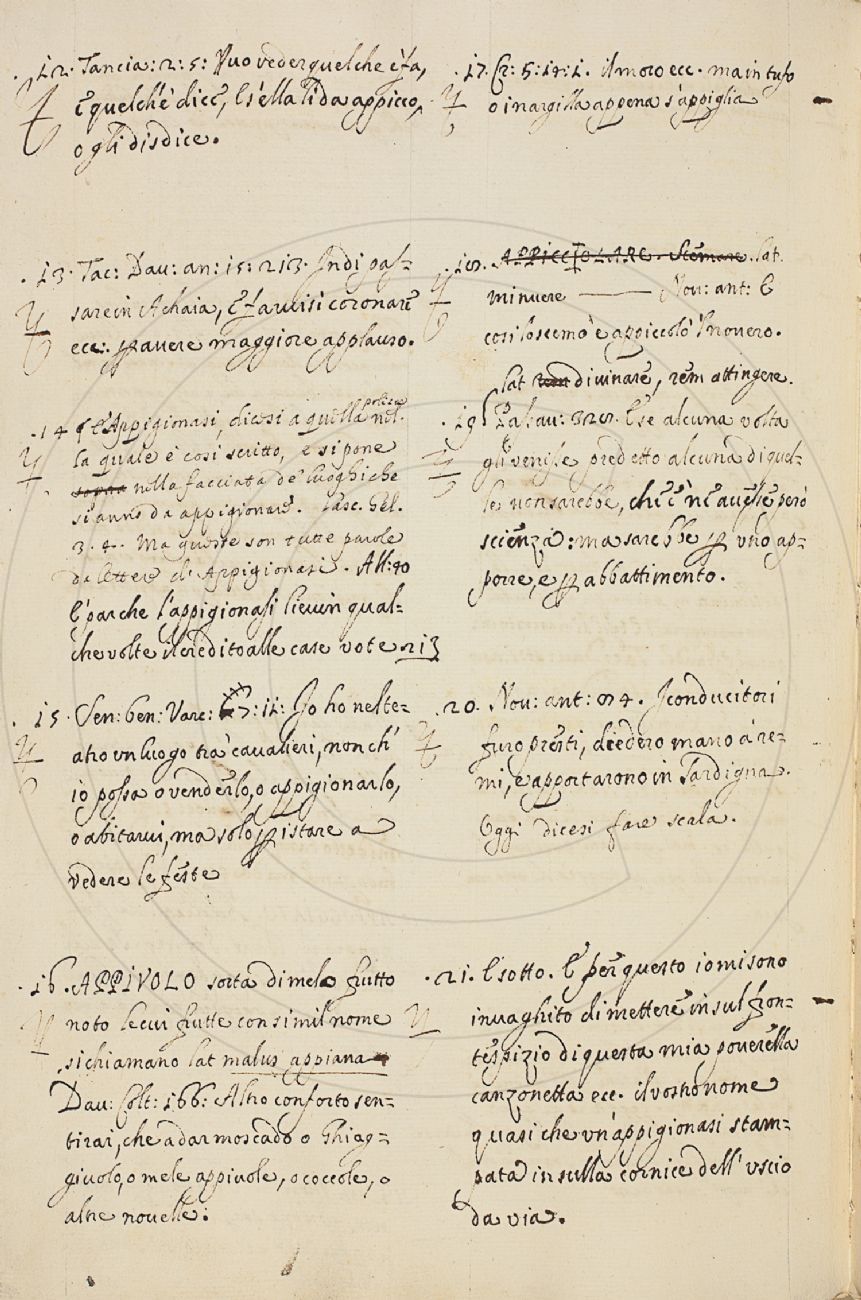 .12. Tancia: 2: 5: Vuo veder quel che e' fa,
E quel ch'e' dice, e s'ella li da appicco,
o gli disdice.
.13. Tac: Dav: an: 15: 213. Indi pas-
sare in Achaia, e farvisi coronare
ecc: ꝑ avere maggiore applauso.
.14 Appigionasi, dicesi a quella poliza nel-
la quale è così scritto, e si pone
sopra nella facciata de' luoghi che
si anno da appigionare. Lasc. Gel.
3. 4. Ma queste son tutte parole
da lettere di Appigionasi. All: 40
E par che l'appigionasi lievin qual-
che volte il credito alle case vote 213
.15. Sen: ben: Varc: 7: 12: Io ho nel te-
atro un luogo tra' cavalieri, non ch'
io possa o venderlo, o appigionarlo,
o abitarvi, ma solo ꝑ istare a
vedere le feste
.16. APPIVOLO sorta di melo frutto
noto le cui frutte con simil nome
si chiamano lat malus appiana
Dav: Colt: 166: Altro conforto sen-
tirai, che a dar moscado o Ghiag-
giuolo, o mele appiuole, o coccole, o
altre novelle:
.17. Cr: 5: 14: 1. il moro ecc. ma in tufo
o in argilla appena s'appiglia
.18. APPICCIOLARE. Scemare. lat.
minuere —— Nov: ant: 6
così lo scemò e appiccolò l'novero.
lat rem divinare, rem attingere.
.19. Pal: av: 328. E se alcuna volta
gli venisse predetto alcuna di quel-
le non sarebbe, che e' n'e' avesse però
scienza: ma sarebbe ꝑ uno ap-
porre, e ꝑ abbattimento.
.20. Nov: ant: 84. I conducitori
furo presti, diedero mano a' re-
mi, e apportarono in Sardigna.
Oggi dicesi fare scala.
.21. E sotto. E per questo io mi sono
invaghito di mettere in sul fron-
tespizio di questa mia poverella
canzonetta ecc. il vostro nome
quasi che un'appigionasi stam-
pata in sulla cornice dell'uscio
da via.